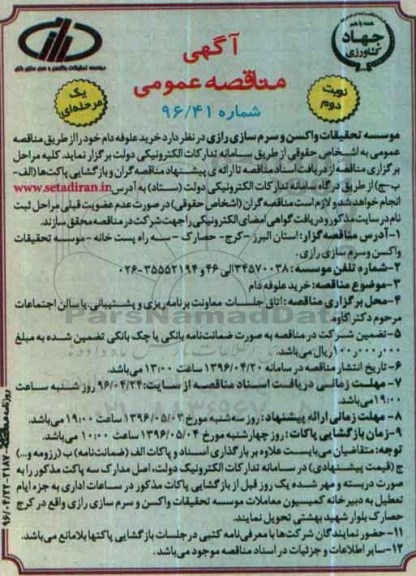 همه با هم
جهاد
کشاورزی
موسسه تحقیقات واکسن و سرم سازی رازی
آگهی
مناقصه عمومی
شماره ۹۶/۴۱
نوبت
دوم
یک
مرحله‌ای
موسسه تحقیقات واکسن و سرم سازی رازی در نظر دارد خرید علوفه دام خود را از طریق مناقصه
عمومی به اشخاص حقوقی از طریق سامانه تدارکات الکترونیکی دولت برگزار نماید. کلیه مراحل
برگزاری مناقصه از دریافت اسناد مناقصه تا ارائه ی پیشنهاد مناقصه گران و بازگشایی پاکت‌ها (الف-
ب-ج) از طریق درگاه سامانه تدارکات الکترونیکی دولت (ستاد) به آدرس www.setadiran.ir
انجام خواهد شد و لازم است مناقصه گران (اشخاص حقوقی) در صورت عدم عضویت قبلی مراحل ثبت
نام در سایت مذکور و دریافت گواهی امضای الکترونیکی را جهت شرکت در مناقصه محقق سازند.
۱-آدرس مناقصه گزار: استان البرز -کرج- حصارک - سه راه پست خانه - موسسه تحقیقات
واکسن و سرم سازی رازی.
۲-شماره تلفن موسسه: ۳۴۵۷۰۰۳۸ الی ۴۶ و ۳۵۵۵۲۱۹۴-۰۲۶
۳-موضوع مناقصه: خرید علوفه دام
۴-محل برگزاری مناقصه: اتاق جلسات معاونت برنامه ریزی و پشتیبانی یا سالن اجتماعات
مرحوم دکتر کاوه
۵-تضمین شرکت در مناقصه به صورت ضمانت‌نامه بانکی یا چک بانکی تضمین شده به مبلغ
ریال می‌باشد.
۶- تاریخ انتشار مناقصه در سامانه ۱۳۹۶/۰۴/۲۰ ساعت ۱۳:۰۰ می باشد.
۷- مهلت زمانی دریافت اسناد مناقصه از سایت: ۹۶/۰۴/۲۴ روز شنبه ساعت
۱۹:۰۰ می‌باشد.
۸- مهلت زمانی ارائه پیشنهاد: روز سه‌شنبه مورخ ۱۳۹۶/۰۵/۰۳ ساعت ۱۹:۰۰ می باشد.
۹-زمان بازگشایی پاکات: روز چهارشنبه مورخ ۱۳۹۶/۰۵/۰۴ ساعت ۱۰:۰۰ می‌باشد.
توجه: متقاضیان می‌بایست علاوه بر بارگذاری اسناد و پاکات الف (ضمانت‌نامه) ب (رزومه و...)
ج (قیمت پیشنهادی) در سامانه تدارکات الکترونیک دولت، اصل مدارک سه پاکت مذکور را به
صورت دربسته و مهر شده یک روز قبل از بازگشایی پاکات مذکور در ساعات اداری به جزء ایام
تعطیل به دبیرخانه کمیسیون معاملات موسسه تحقیقات واکسن و سرم سازی رازی واقع در کرج
حصارک بلوار شهید بهشتی تحویل نمایند.
۱۱-حضور نمایندگان شرکت‌ها با معرفی‌نامه کتبی در جلسات بازگشایی پاکتها بلامانع می‌باشد.
۱۲-سایر اطلاعات و جزئیات در اسناد مناقصه موجود می باشد.
ParsNamadData